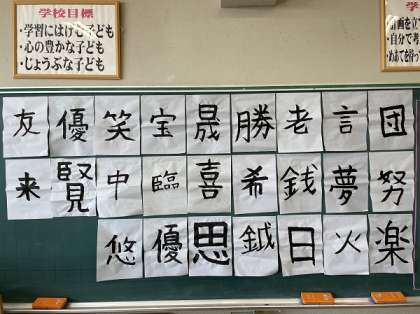 学校目標
・学習にはげむ子ども
・心の豊かな子ども
・じょうぶな子ども
学
・自分で考
友 優 笑 宝 晟 勝 老 言 団
来 賢 中 臨 喜 希 銭 夢 努
悠 優 思 鉞 日 火 楽